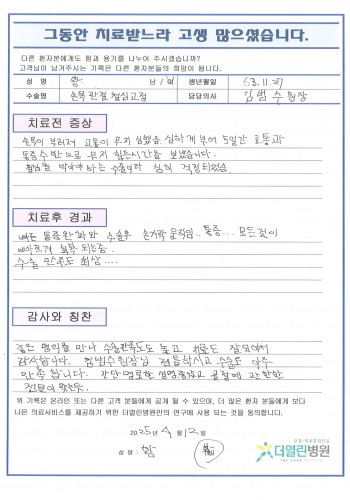 그동안 치료받느라 고생 많으셨습니다.
다른 환자분에게도 힘과 용기를 나누어 주시겠습니까?
고객님이 남겨주시는 기록은 다른 환자분들의 희망이 됩니다.
성 명 황 남/여 생년월일 53.11.27
수술명 손목 관절 철심고정 담당의사 김범수 원장
치료전 증상
손목이 부러져 고통이 무지 심했음. 심하게 부어 5일간 고통과
통증수반으로 무지 힘든시간을 보냈습니다.
철심을 박아야 하는 수술이라 심히 걱정되었음.
치료후 경과
빠른 통증완화와 수술후 손가락 움직임.. 통증... 모든것이
빠르게 회복 되는중.
수술 만족도 최상....
감사와 칭찬
좋은 명의를 만나 수술만족도도 높고 치료도 잘되어서
감사합니다. 김범수원장님 친절하시고 수술도 아주
만족합니다. 간단 명료한 설명
전문의 였는듯.
위 기록은 온라인 또는 다른 고객 분들에게 공개 될 수 있으며, 더 많은 환자 분들에게 보다
나은 의료서비스를 제공하기 위한 더열린병원만의 연구에 사용 되는 것을 동의합니다.
2025년 4월 12일
성 명 : 황
더열린병원